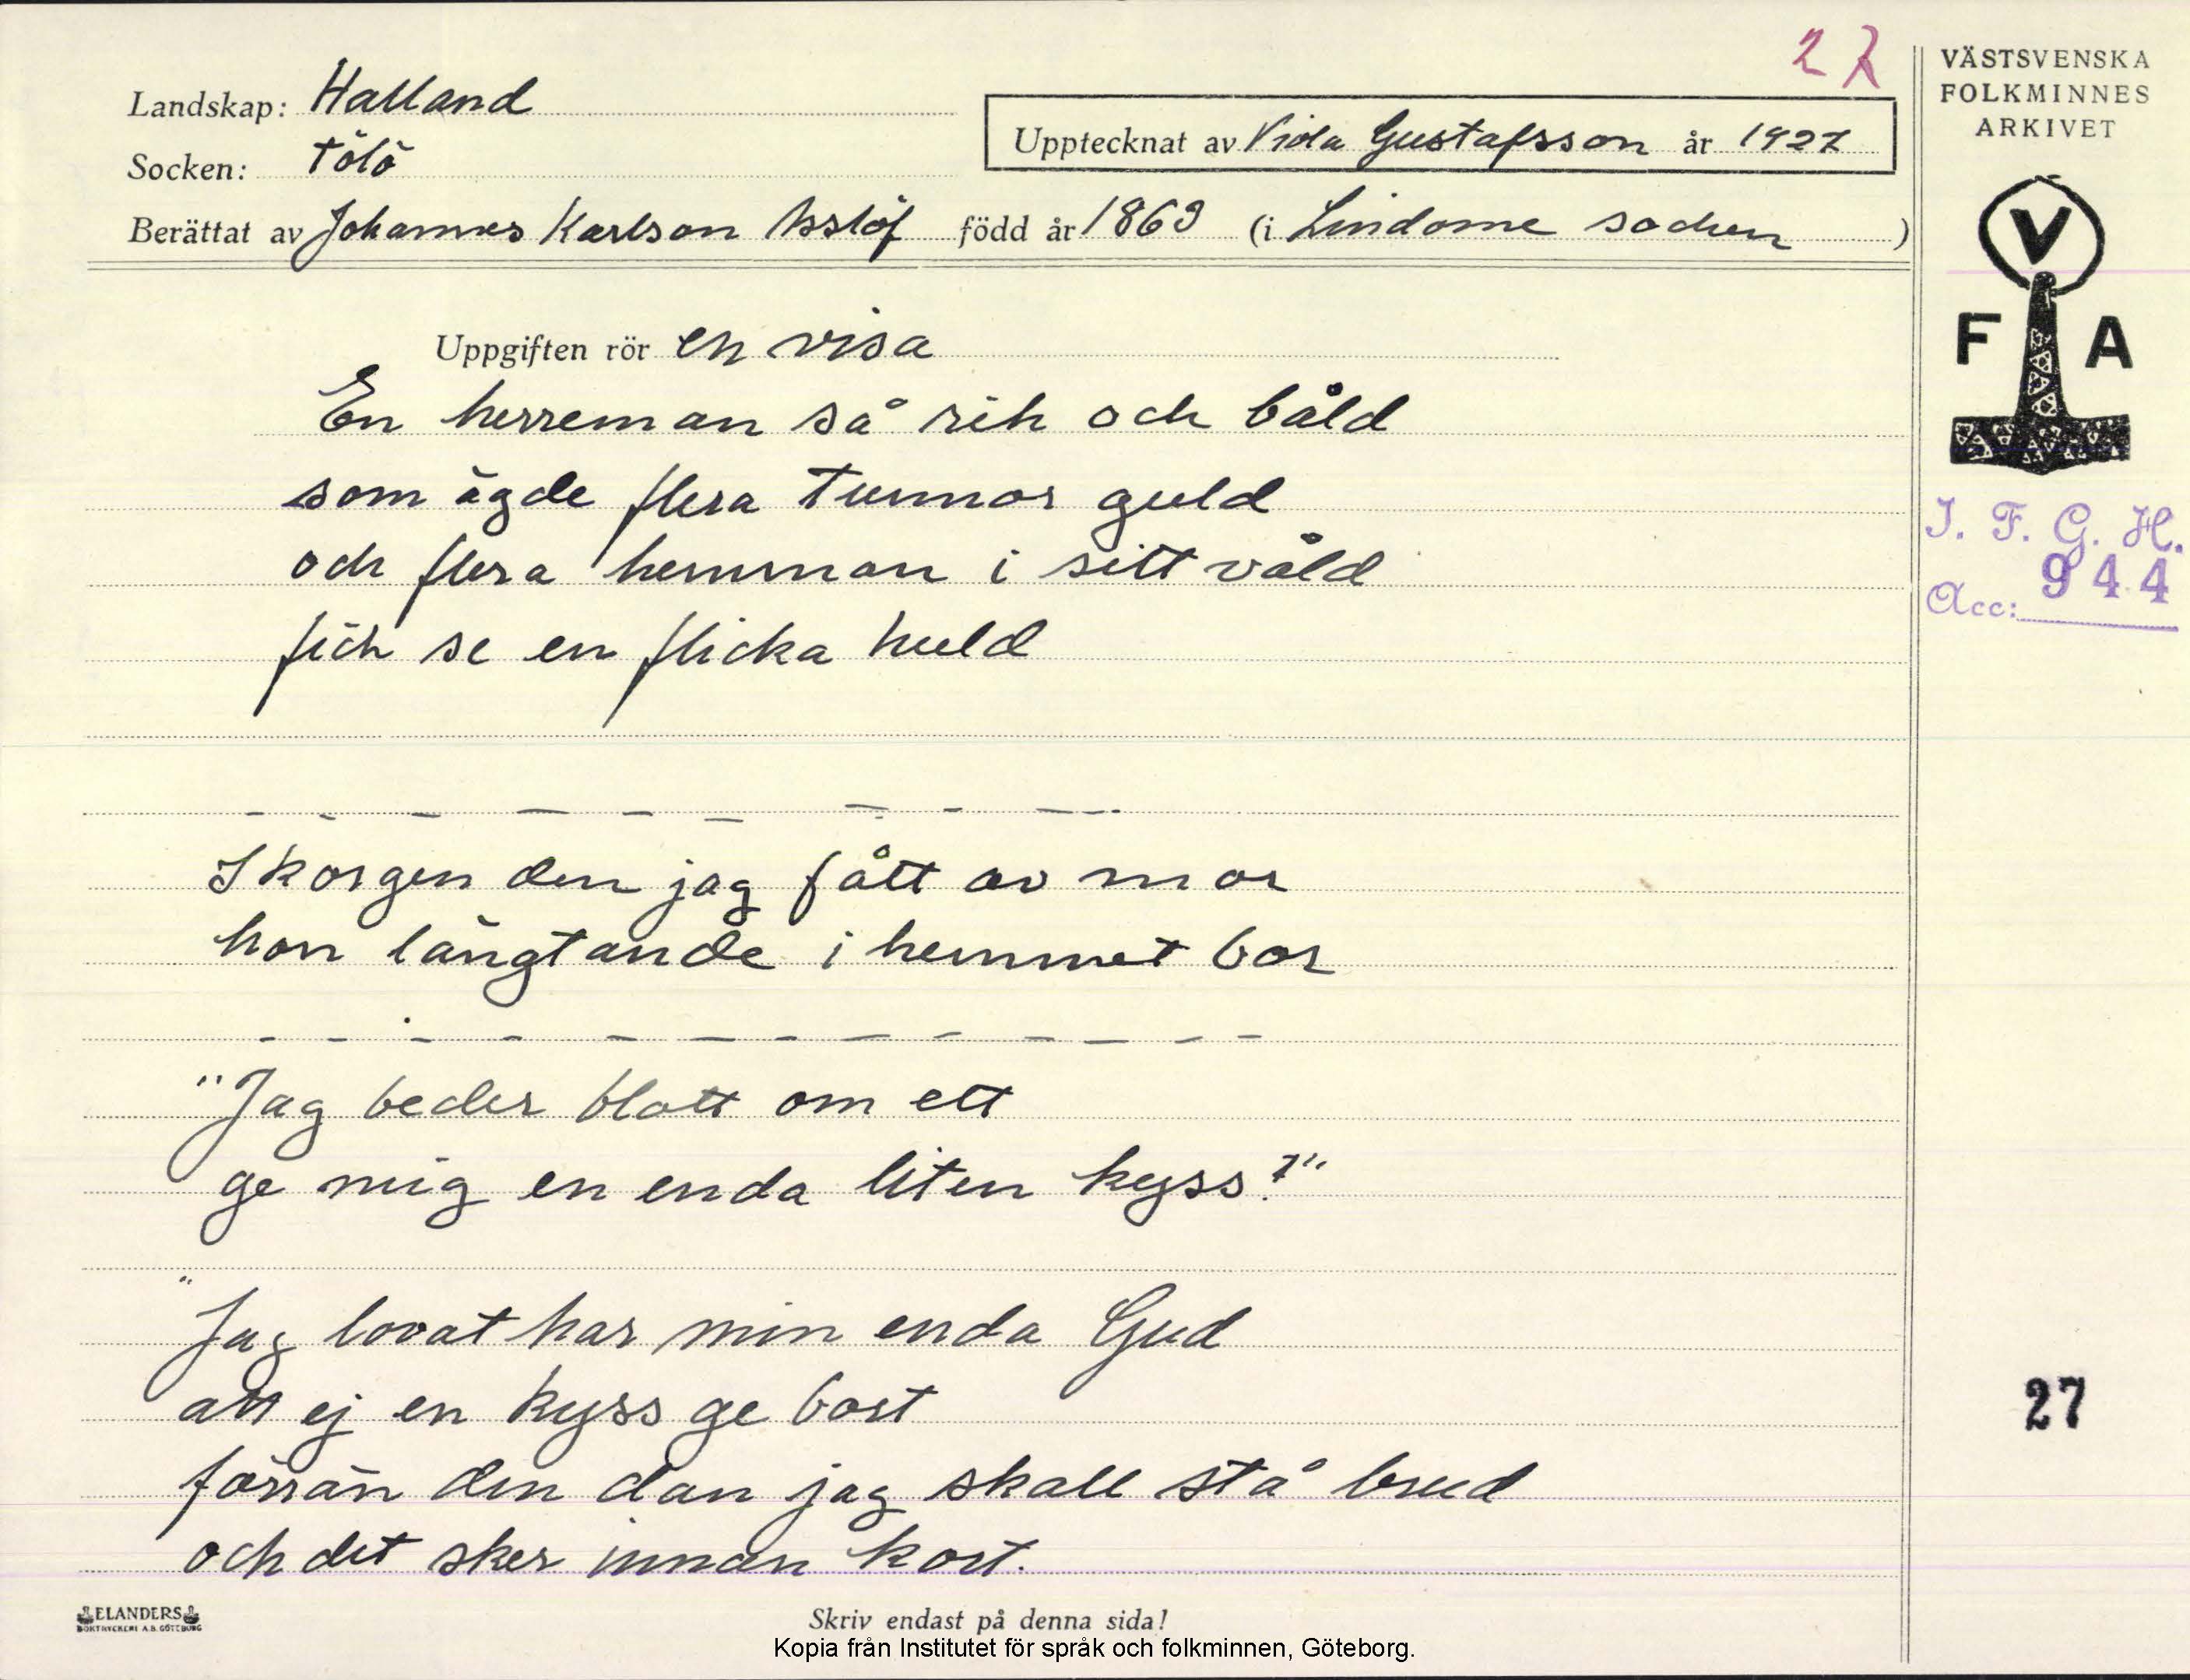 27
VÄSTSVENSKA
FOLKMINNES
ARKIVET
Landskap: Halland
Upptecknat av Viola Gustafsson år 1927
Socken: Tölö
Berättat av Johannes Karlson född år 1863 (i Lindome socken )
V
F A
Uppgiften rör en visa
En herreman så rik och båld
som ägde flera tunnor guld
och flera hemman i sitt våld
fick se en flicka huld
I. F. G. H.
Acc: 944
I korgen den jag fått av mor
hon längtande i hemmet bor
"Jag beder blott om ett
ge mig en enda liten kyss?"
"Jag lovat har min enda Gud
att ej en kyss ge bort
förrän den dan jag skall stå brud
och det sker innan kort.
27
ELANDERS
BOKTRYCKERI A.B. GÖTEBORG
Skriv endast på denna sida!
Kopia från Institutet för språk och folkminnen, Göteborg.